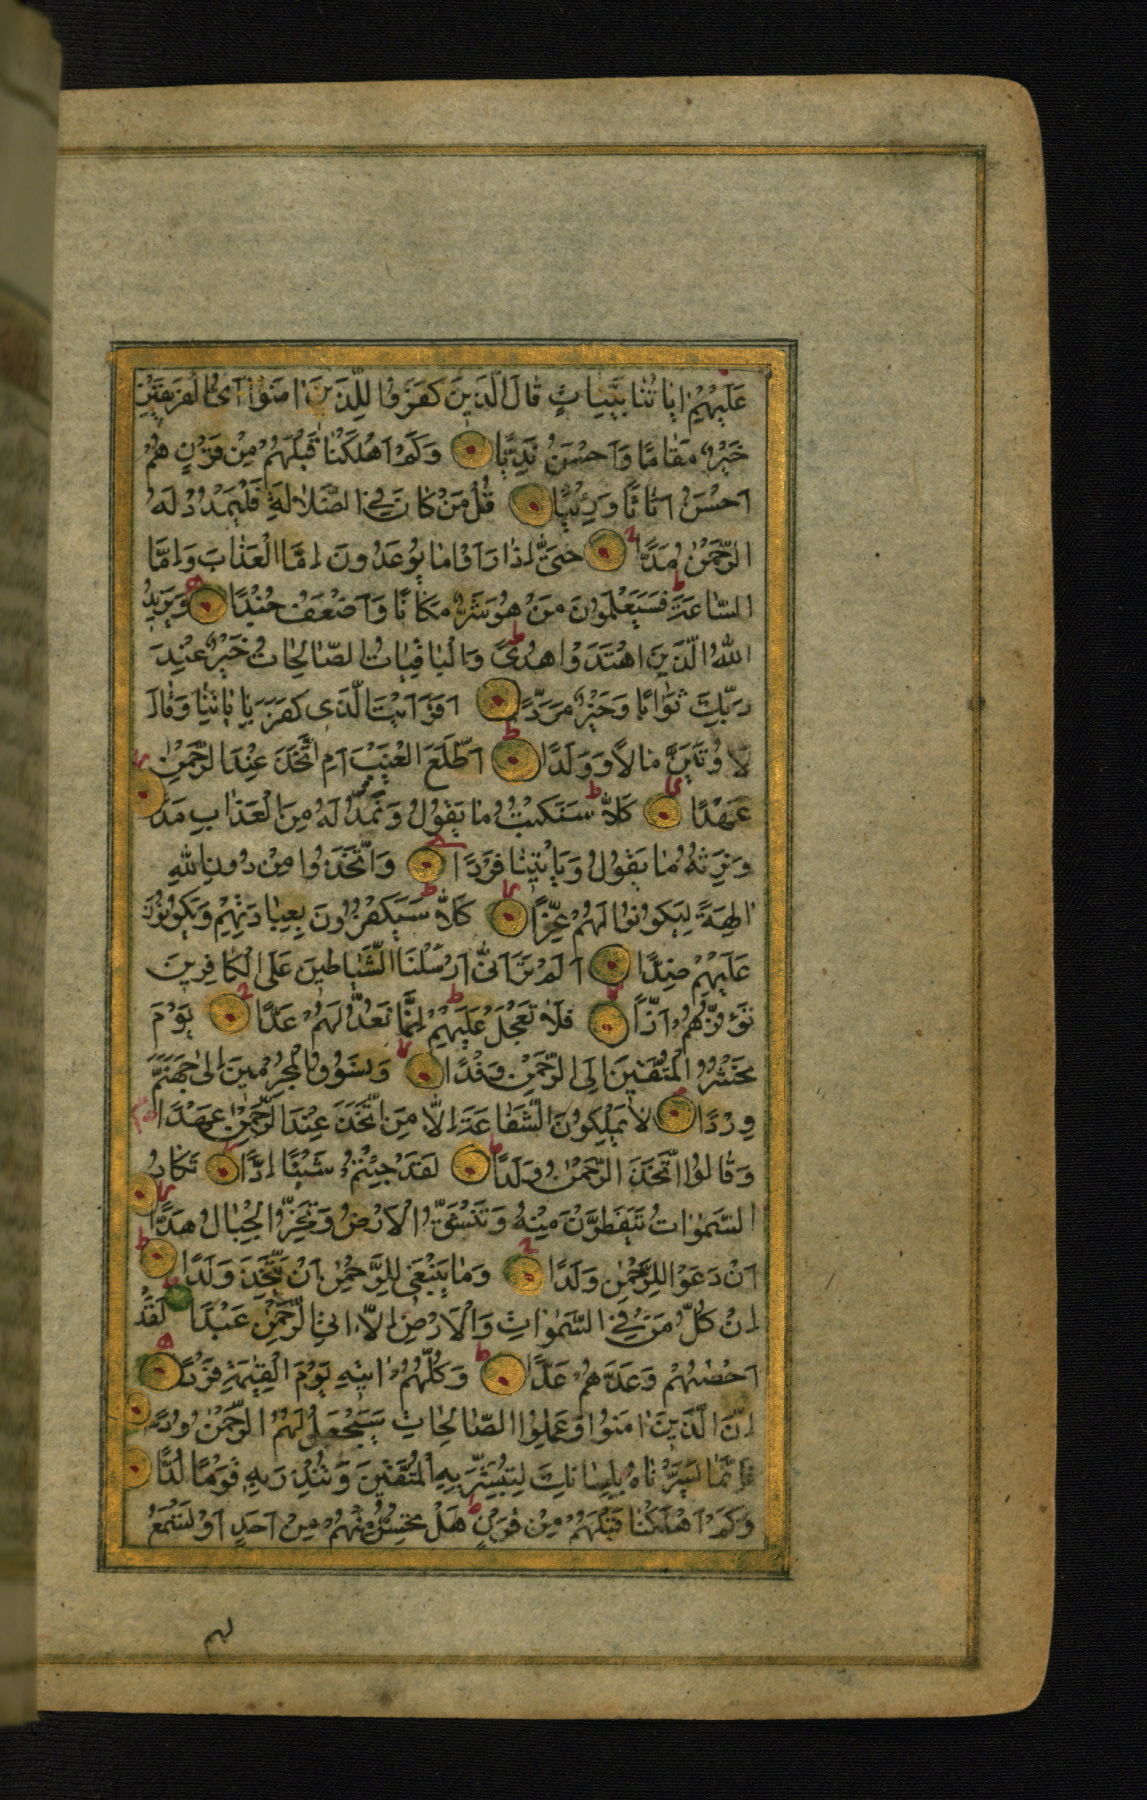 عَلَيْهِمْ اٰيَاتُنَا بَيِّنَاتٍ قَالَ الَّذِينَ كَفَرُوا لِلَّذِينَ اٰمَنُوا اَىُّ الْفَرِيقَيْنِ
خَيْرٌ مَقَامًا وَاَحْسَنُ نَدِيًّا وَكَمْ اَهْلَكْنَا قَبْلَهُمْ مِنْ قَرْنٍ هُمْ
اَحْسَنُ اَثَاثًا وَرِئْيًا قُلْ مَنْ كَانَ فِى الضَّلَالَةِ فَلْيَمْدُدْ لَهُ
الرَّحْمٰنُ مَدًّا حَتّٰى اِذَا رَاَوْا مَا يُوعَدُونَ اِمَّا الْعَذَابَ وَاِمَّا
السَّاعَةَ فَسَيَعْلَمُونَ مَنْ هُوَ شَرٌّ مَكَانًا وَاَضْعَفُ جُنْدًا وَيَزِيدُ
اللّٰهُ الَّذِينَ اهْتَدَوْا هُدًى وَالْبَاقِيَاتُ الصَّالِحَاتُ خَيْرٌ عِنْدَ
رَبِّكَ ثَوَابًا وَخَيْرٌ مَرَدًّا اَفَرَاَيْتَ الَّذِى كَفَرَ بِاٰيَاتِنَا وَقَالَ
لَاُوتَيَنَّ مَالًا وَوَلَدًا اَطَّلَعَ الْغَيْبَ اَمِ اتَّخَذَ عِنْدَ الرَّحْمٰنِ
عَهْدًا كَلَّا سَنَكْتُبُ مَا يَقُولُ وَنَمُدُّ لَهُ مِنَ الْعَذَابِ مَدًّا
وَنَرِثُهُ مَا يَقُولُ وَيَاْتِينَا فَرْدًا وَاتَّخَذُوا مِنْ دُونِ اللّٰهِ
اٰلِهَةً لِيَكُونُوا لَهُمْ عِزًّا كَلَّا سَيَكْفُرُونَ بِعِبَادَتِهِمْ وَيَكُونُونَ
عَلَيْهِمْ ضِدًّا اَلَمْ تَرَ اَنَّا اَرْسَلْنَا الشَّيَاطِينَ عَلَى الْكَافِرِينَ
تَؤُزُّهُمْ اَزًّا فَلَا تَعْجَلْ عَلَيْهِمْ اِنَّمَا نَعُدُّ لَهُمْ عَدًّا يَوْمَ
نَحْشُرُ الْمُتَّقِينَ اِلَى الرَّحْمٰنِ وَفْدًا وَنَسُوقُ الْمُجْرِمِينَ اِلٰى جَهَنَّمَ
وِرْدًا لَا يَمْلِكُونَ الشَّفَاعَةَ اِلَّا مَنِ اتَّخَذَ عِنْدَ الرَّحْمٰنِ عَهْدًا
وَقَالُوا اتَّخَذَ الرَّحْمٰنُ وَلَدًا لَقَدْ جِئْتُمْ شَيْئًا اِدًّا تَكَادُ
السَّمٰوَاتُ يَتَفَطَّرْنَ مِنْهُ وَتَنْشَقُّ الْاَرْضُ وَتَخِرُّ الْجِبَالُ هَدًّا
اَنْ دَعَوْا لِلرَّحْمٰنِ وَلَدًا وَمَا يَنْبَغِى لِلرَّحْمٰنِ اَنْ يَتَّخِذَ وَلَدًا
اِنْ كُلُّ مَنْ فِى السَّمٰوَاتِ وَالْاَرْضِ اِلَّا اٰتِى الرَّحْمٰنِ عَبْدًا لَقَدْ
اَحْصٰيهُمْ وَعَدَّهُمْ عَدًّا وَكُلُّهُمْ اٰتِيهِ يَوْمَ الْقِيٰمَةِ فَرْدًا
اِنَّ الَّذِينَ اٰمَنُوا وَعَمِلُوا الصَّالِحَاتِ سَيَجْعَلُ لَهُمُ الرَّحْمٰنُ وُدًّا
فَاِنَّمَا يَسَّرْنَاهُ بِلِسَانِكَ لِتُبَشِّرَ بِهِ الْمُتَّقِينَ وَتُنْذِرَ بِهِ قَوْمًا لُدًّا
وَكَمْ اَهْلَكْنَا قَبْلَهُمْ مِنْ قَرْنٍ هَلْ تُحِسُّ مِنْهُمْ مِنْ اَحَدٍ اَوْ تَسْمَعُ
لهم